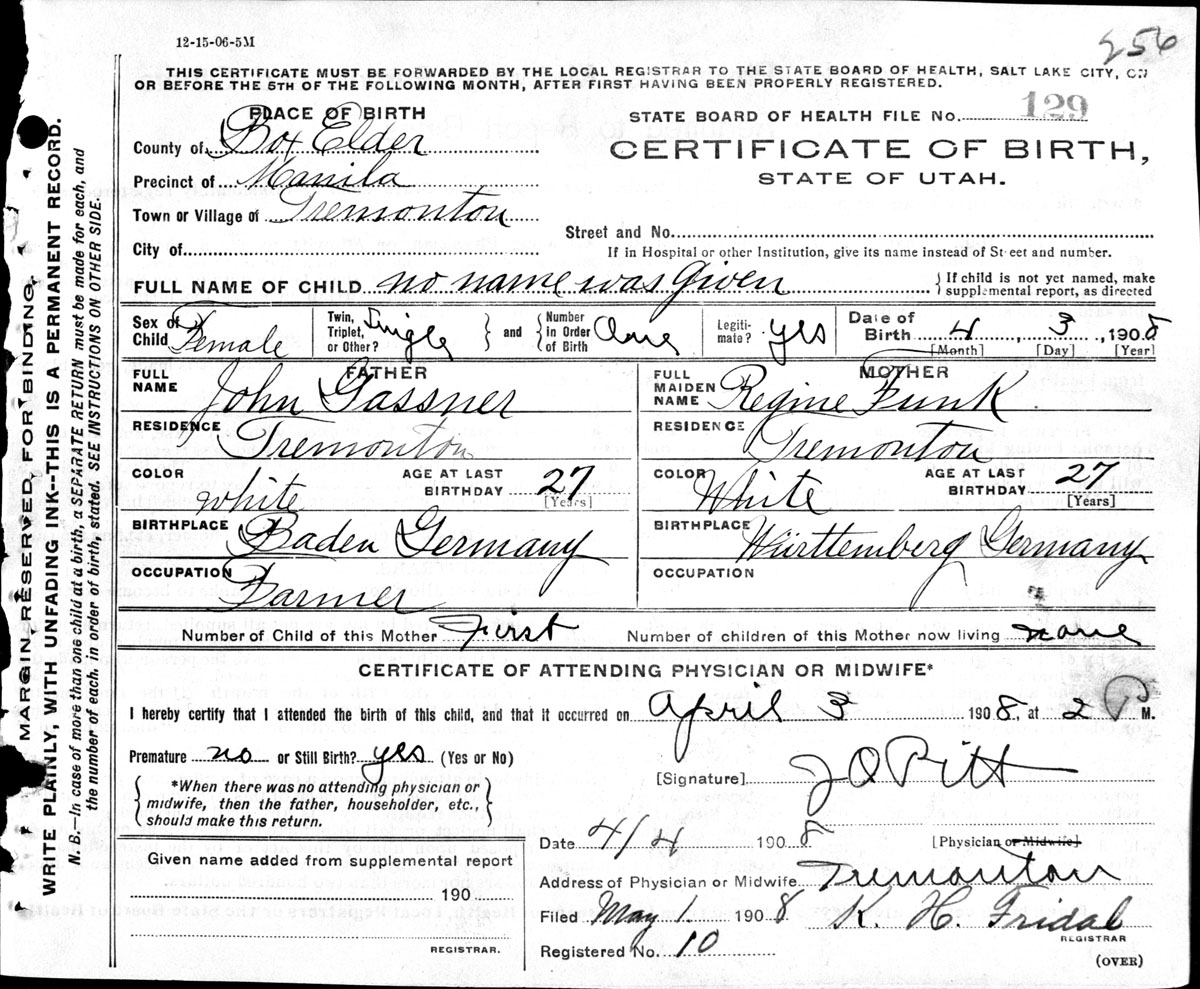 12-15-06-5M
256
THIS CERTIFICATE MUST BE FORWARDED BY THE LOCAL REGISTRAR TO THE STATE BOARD OF HEALTH, SALT LAKE CITY, ON
OR BEFORE THE 5TH OF THE FOLLOWING MONTH, AFTER FIRST HAVING BEEN PROPERLY REGISTERED.
PLACE OF BIRTH
County of Box Elder
Precinct of Manila
Town or Village of Tremonton
City of
STATE BOARD OF HEALTH FILE No. 129
CERTIFICATE OF BIRTH,
STATE OF UTAH.
Street and No.
If in Hospital or other Institution, give its name instead of Street and number.
FULL NAME OF CHILD no name was Given { If child is not yet named, make supplemental report, as directed
Sex of Child Female Twin, Triplet, or Other? Single } and { Number in Order of Birth One Legiti-mate? yes Date of Birth 4 3, 1908
[Month] [Day] [Year]
FATHER
FULL NAME John Gassner
RESIDENCE Tremonton
COLOR white AGE AT LAST BIRTHDAY 27 [Years]
BIRTHPLACE Baden Germany
OCCUPATION Farmer
MOTHER
FULL MAIDEN NAME Regine Funk
RESIDENCE Tremonton
COLOR White AGE AT LAST BIRTHDAY 27 [Years]
BIRTHPLACE Württemberg Germany
OCCUPATION
Number of Child of this Mother First Number of children of this Mother now living none
CERTIFICATE OF ATTENDING PHYSICIAN OR MIDWIFE*
I hereby certify that I attended the birth of this child, and that it occurred on April 3 1908, at 2 P M.
Premature no or Still Birth? yes (Yes or No)
{ *When there was no attending physician or
midwife, then the father, householder, etc.,
should make this return. }
[Signature] J O Pitt
Date 4/4 1908 [Physician or Midwife]
Address of Physician or Midwife Tremonton
Given name added from supplemental report
190
REGISTRAR.
Filed May 1 1908 K. H. Fridal
REGISTRAR
Registered No. 10
(OVER)
MARGIN RESERVED FOR BINDING.
WRITE PLAINLY, WITH UNFADING INK--THIS IS A PERMANENT RECORD.
N. B.—In case of more than one child at a birth, a SEPARATE RETURN must be made for each, and
the number of each, in order of birth, stated. SEE INSTRUCTIONS ON OTHER SIDE.